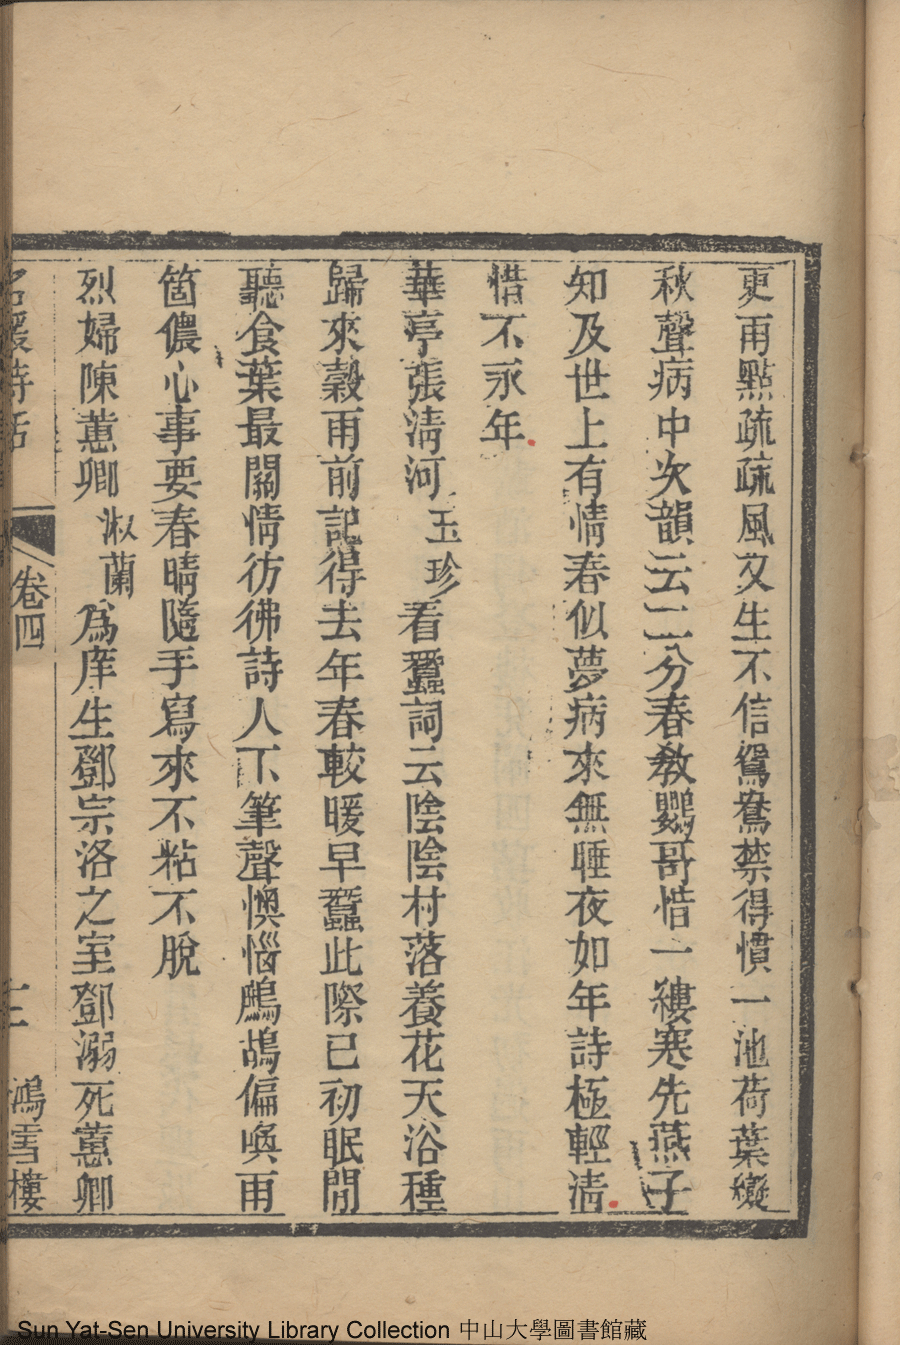 更雨點疏疏風又生不信鴛鴦禁得慣一池荷葉變
秋聲病中次韻云二分春教鸚哥惜一縷寒先燕子
知及世上有情春似夢病來無睡夜如年詩極輕淸
惜不永年
華亭張淸河玉珍看蠶詞云陰陰村落養花天浴種
歸來穀雨前記得去年春較暖早蠶此際已初眠閒
聽食葉最關情彷彿詩人下筆聲懊惱鷓鴣偏喚雨
箇儂心事要春晴隨手寫來不粘不脫
烈婦陳蕙卿淑蘭爲庠生鄧宗洛之室鄧溺死蕙卿
名媛詩話 卷四 鴻雪樓
Sun Yat-Sen University Library Collection 中山大學圖書館藏